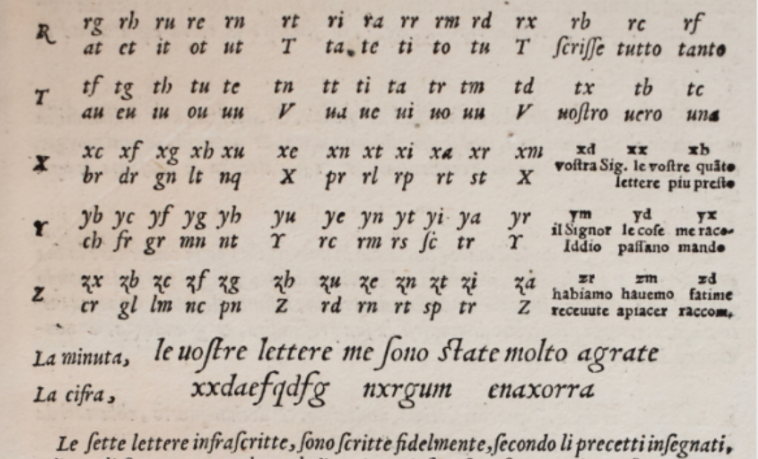 R rg rh ru re rn rt ri ra rr rm rd rx rb rc rf
at et it ot ut T ta te ti to tu T ſcriſſe tutto tanto
T tf tg th tu te tn tt ti ta tr tm td tx tb tc
au eu iu ou uu V ua ue ui uo uu V uoſtro uero una
X xc xf xg xh xu xe xn xt xi xa xr xm xd xx xb
br dr gn lt nq X pr rl rp rt st X voſtra Sig. le voſtre quāto
lettere piu preſto
Y yb yc yf yg yh yu ye yn yt yi ya yr ym yd yx
ch fr gr mn nt Y rc rm rs ſc tr Y il Signor le coſe me raco-
Iddio paſſano mando
Z zx zb zc zf zg zh zu ze zn zt zi za zr zm zd
cr gl lm nc pn Z rd rn rt sp tr Z habiamo hauemo fatime
receuute apiacer raccom.
La minuta, le uoſtre lettere me ſono ſtate molto agrate
La cifra, xxdaefqdfg nxrgum enaxorra
Le ſette lettere infraſcritte, ſono ſcritte fidelmente, ſecondo li precetti inſegnati,